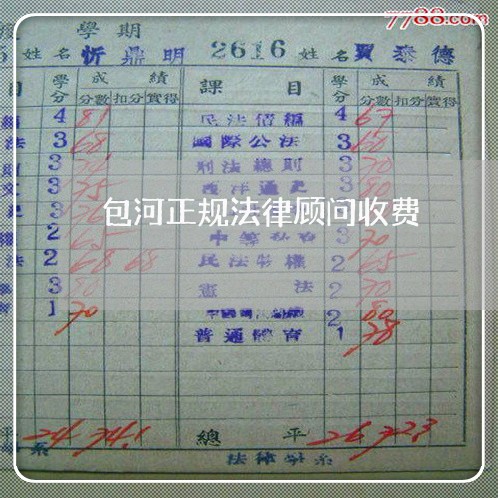 7788.com
學期
姓名 忻鼎明 2616 姓名 賈泰德
目 學分 成績 課目 學分 成績
分數 扣分 實得 分數 扣分 實得
4 81 民法債編 4 67
法 3 68 國際公法 3 60
3 刑法總則 3 70
3 75 西洋通史 3 80
包河正规法律顾问收费
2 65 3 70
法 2 68 68 民法物權 2 65
3 80 憲法 2 70
1 70 2 80
普通體育 1 78
平 24 74.1 總平 26 72.3
系 法律學系